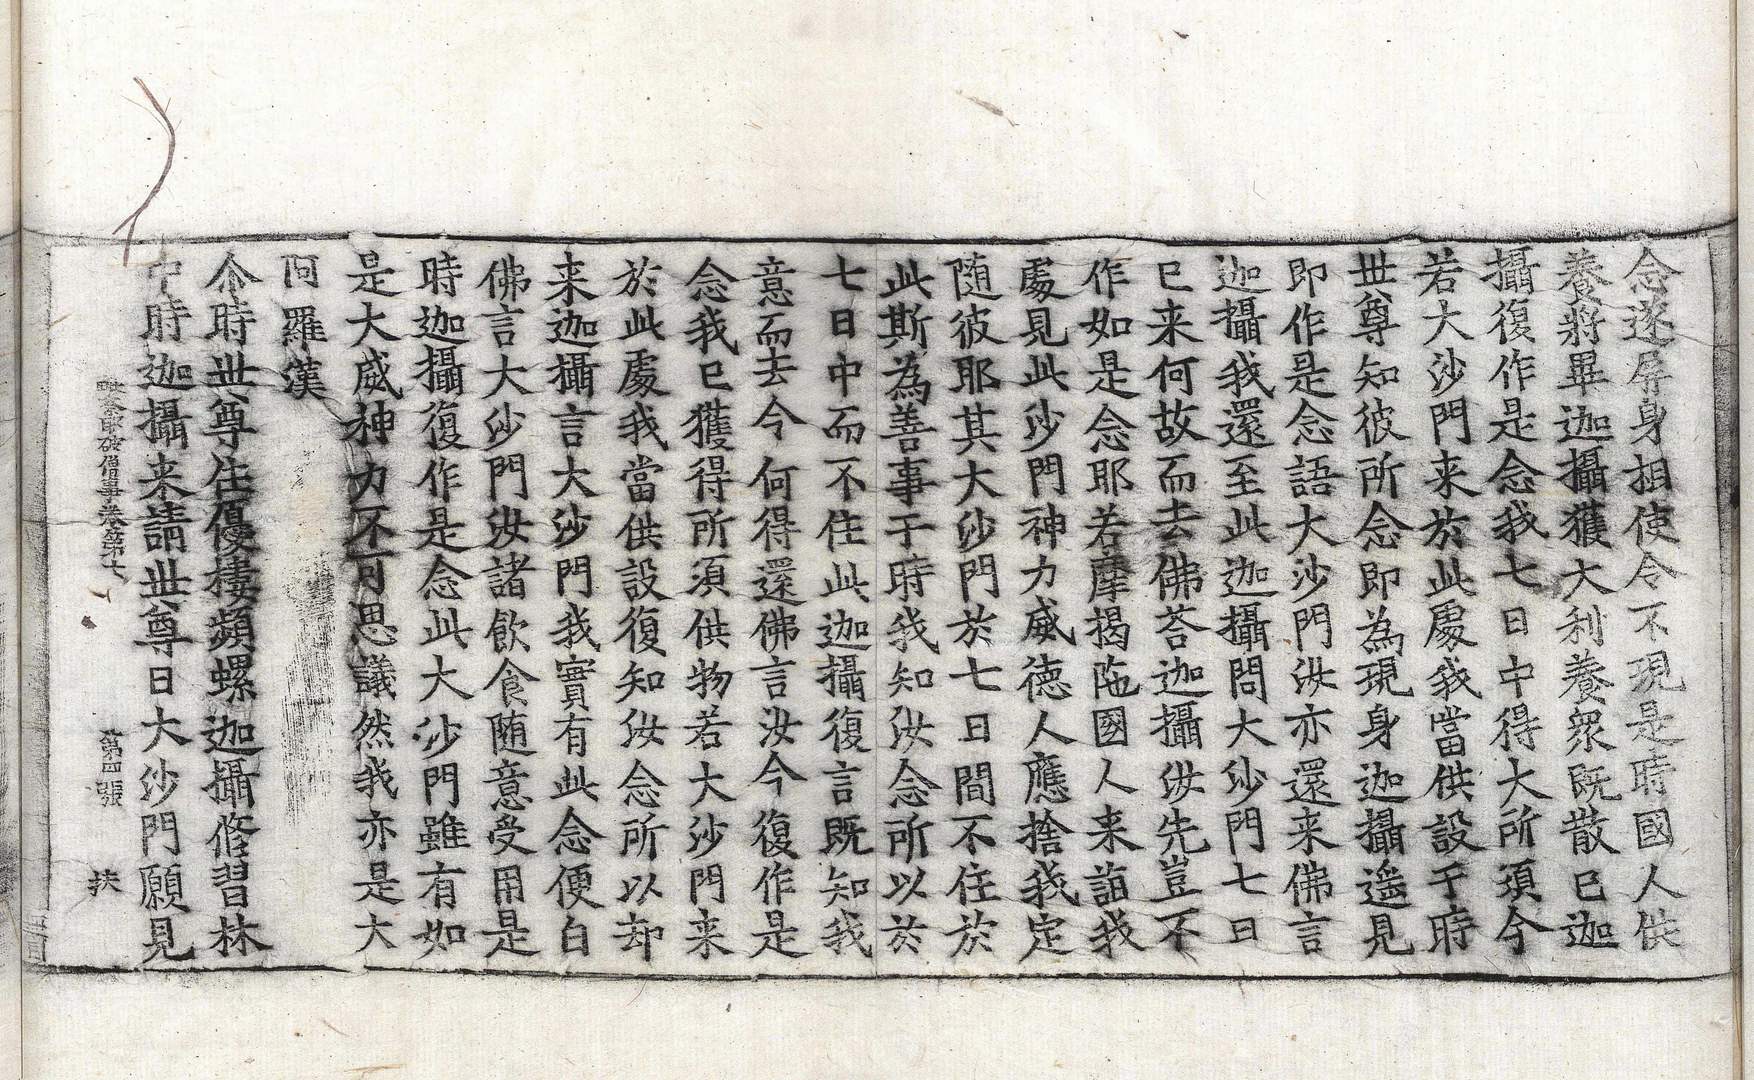 念遂屏身相使令不現是時國人供
養將畢迦攝獲大利養衆既散已迦
攝復作是念我七日中得大所須今
若大沙門来於此處我當供設于時
世尊知彼所念即為現身迦攝遥見
即作是念語大沙門汝亦還来佛言
迦攝我還至此迦攝問大沙門七日
已来何故而去佛荅迦攝汝先豈不
作如是念耶若摩揭陁國人来詣我
處見此沙門神力威德人應捨我定
随彼耶其大沙門於七日間不住於
此斯為善事于時我知汝念所以於
七日中而不住此迦攝復言既知我
意而去今何得還佛言汝今復作是
念我已獲得所須供物若大沙門来
於此處我當供設復知汝念所以却
来迦攝言大沙門我實有此念便白
佛言大沙門汝諸飲食随意受用是
時迦攝復作是念此大沙門雖有如
是大威神力不可思議然我亦是大
阿羅漢
尒時世尊住優樓頻螺迦攝修習林
中時迦攝来請世尊曰大沙門願見
破僧事卷第七 第四張 扶